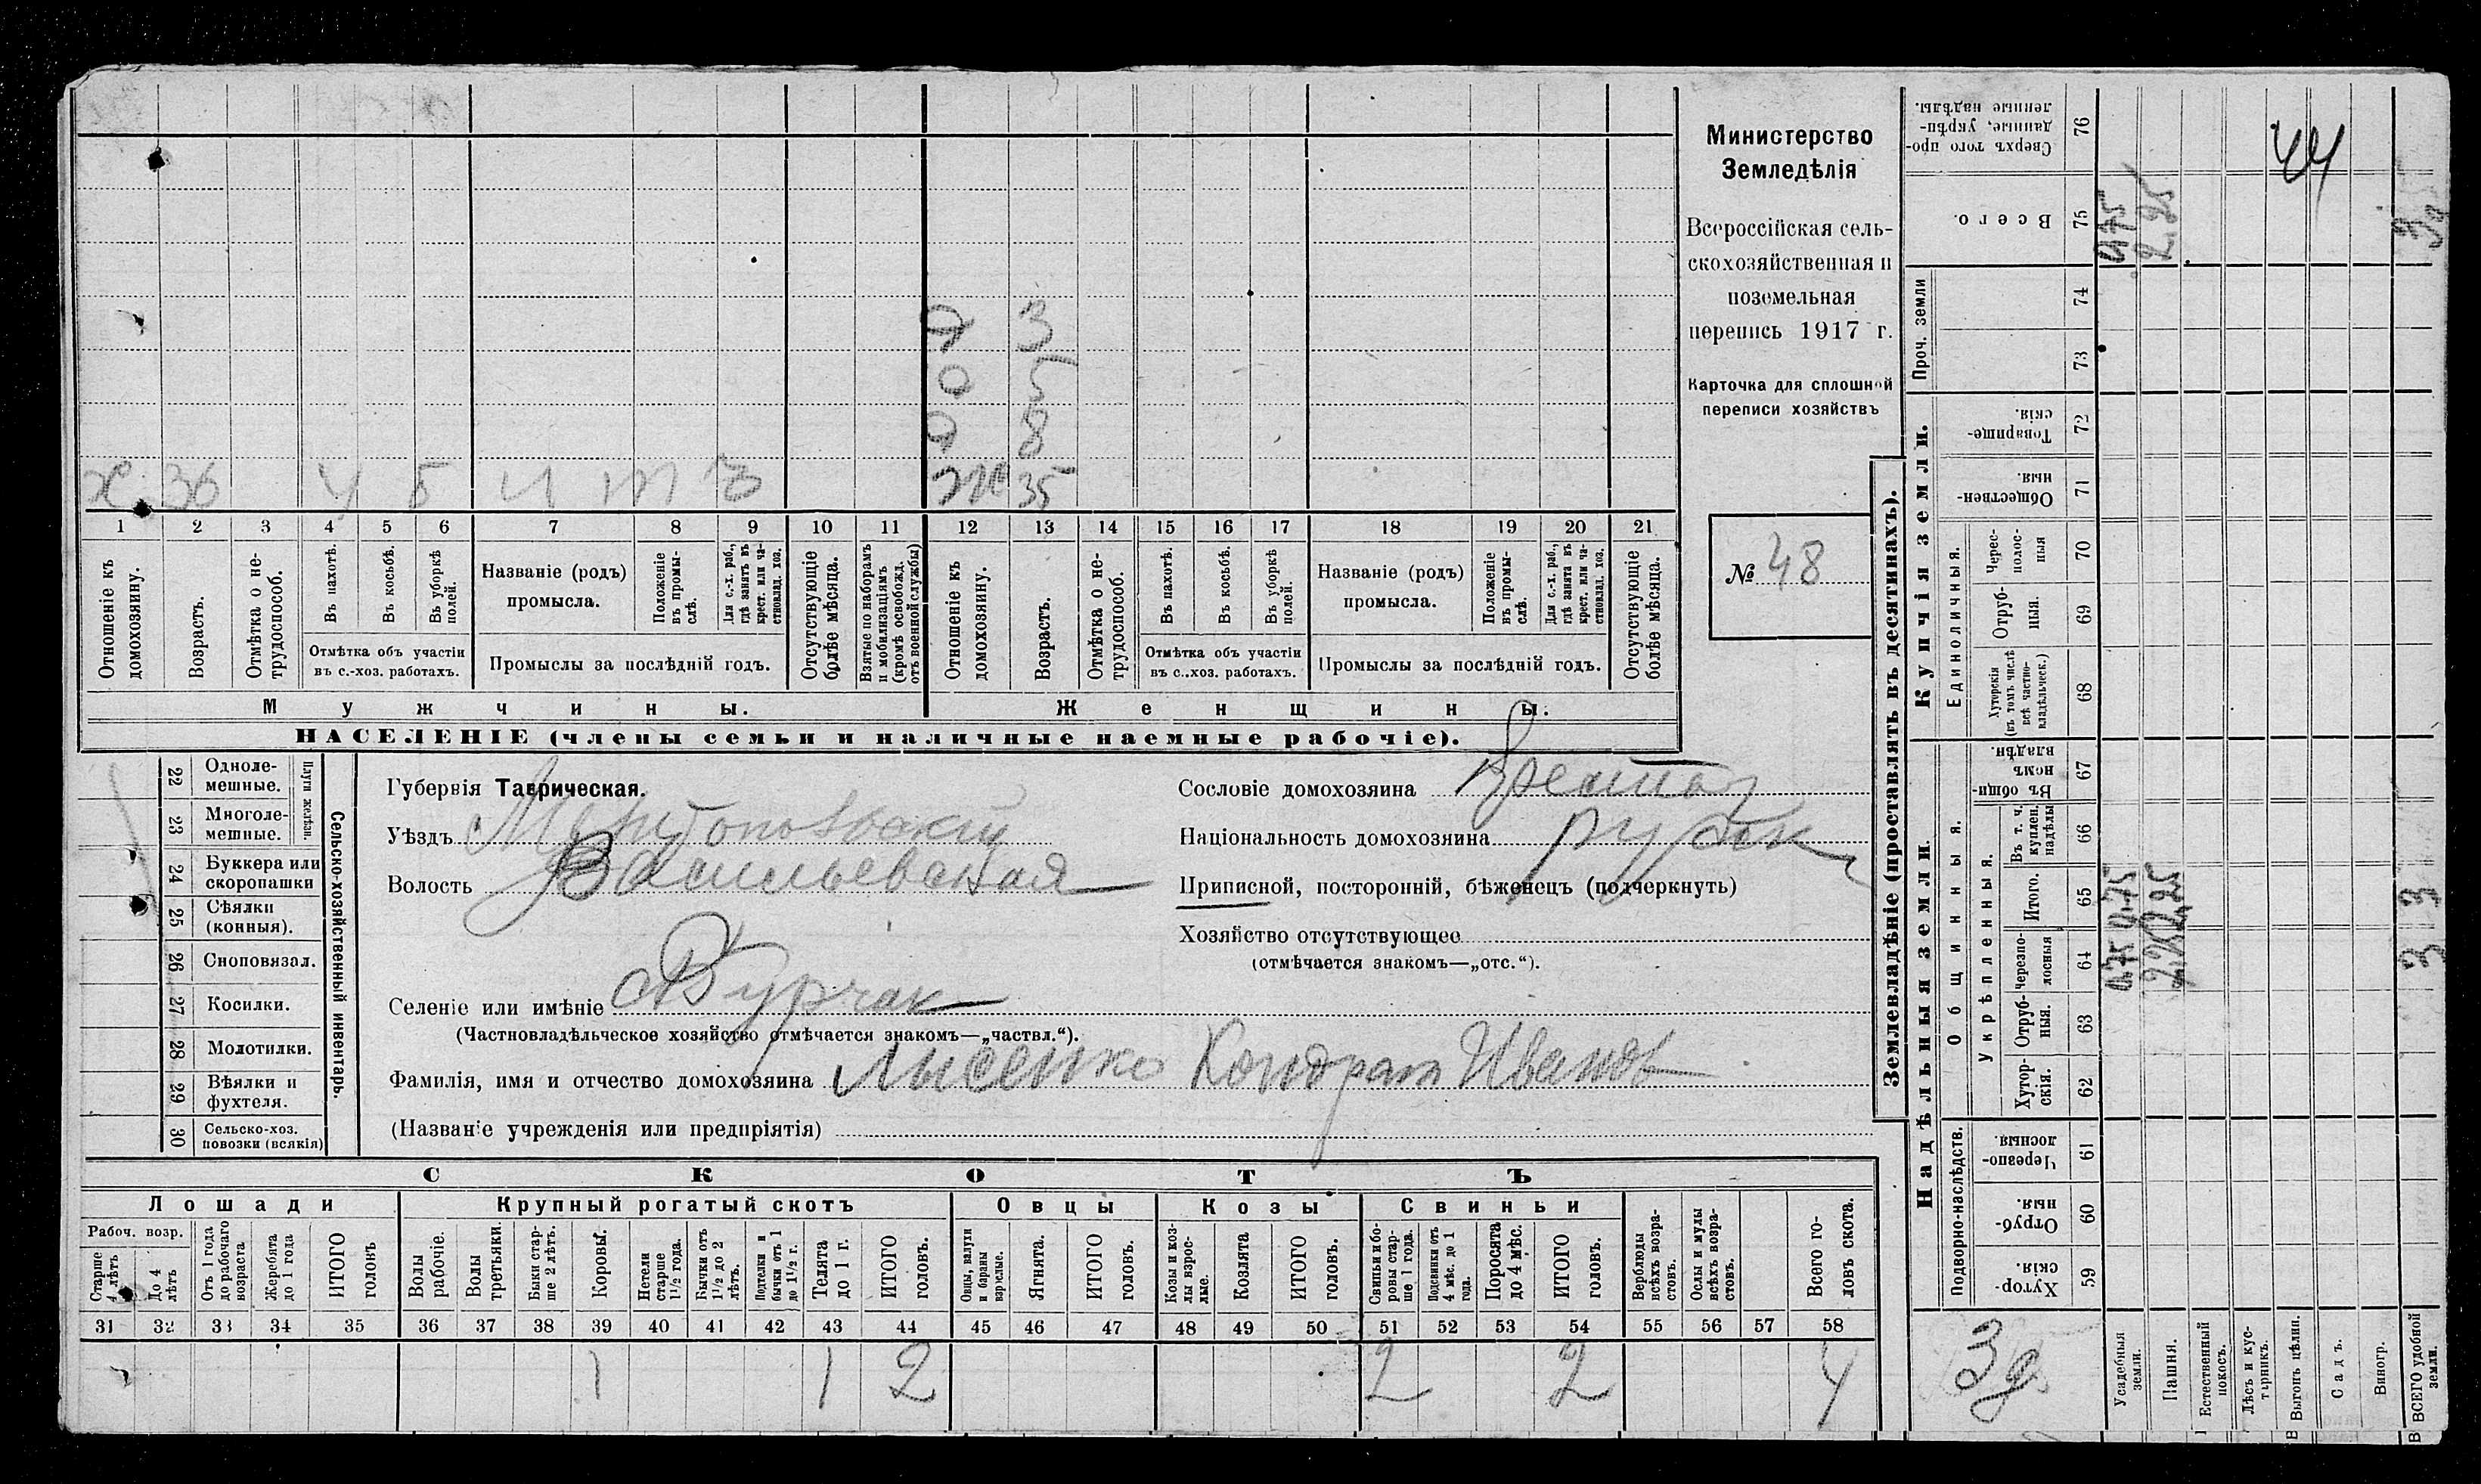 Министерство
Земледѣлія
Всероссійская сель-
скохозяйственная и
поземельная
перепись 1917 г.
Карточка для сплошной
переписи хозяйствъ
№ 48
3
5
8
х. 36 ч Б ж 35
1 2 3 4 5 6 7 8 9 10 11 12 13 14 15 16 17 18 19 20 21
Отношеніе къ домохозяину.
Возрастъ.
Отмѣтка о не-трудоспособ.
Въ пахотѣ.
Въ косьбѣ.
Въ уборкѣ полей.
Отмѣтка объ участіи
въ с.-хоз. работахъ.
Названіе (родъ)
промысла.
Положеніе въ промы-слѣ.
Для с.-х. раб., гдѣ занятъ въ крест. или ча-стновлад. хоз.
Промыслы за послѣдній годъ.
Отсутствующіе болѣе мѣсяца.
Взятые по наборамъ и мобилизаціямъ (кромѣ освобожд. отъ военной службы)
Отношеніе къ домохозяину.
Возрастъ.
Отмѣтка о не-трудоспособ.
Въ пахотѣ.
Въ косьбѣ.
Въ уборкѣ полей.
Отмѣтка объ участіи
въ с.-хоз. работахъ.
Названіе (родъ)
промысла.
Положеніе въ промы-слѣ.
Для с.-х. раб., гдѣ занята въ крест. или ча-стновлад. хоз.
Промыслы за послѣдній годъ.
Отсутствующіе болѣе мѣсяца.
Мужчины. Женщины.
НАСЕЛЕНІЕ (члены семьи и наличные наемные рабочіе).
Сельско-хозяйственный инвентарь.
Плуги желѣзн.
22 Одноле-мешные.
23 Многоле-мешные.
24 Буккера или скоропашки
25 Сѣялки (конныя).
26 Сноповязал.
27 Косилки.
28 Молотилки.
29 Вѣялки и фухтеля.
30 Сельско-хоз. повозки (всякія)
Губернія Таврическая.
Уѣздъ Мелитопольскій
Волость Васильевская
Селеніе или имѣніе Бурчак
(Частновладѣльческое хозяйство отмѣчается знакомъ—„частвл.“).
Фамилія, имя и отчество домохозяина Лысенко Кондрат Иванов
(Названіе учрежденія или предпріятія)
Сословіе домохозяина
Національность домохозяина русск
Приписной, посторонній, бѣженецъ (подчеркнуть)
Хозяйство отсутствующее
(отмѣчается знакомъ—„отс.“).
СКОТЪ
Лошади Крупный рогатый скотъ Овцы Козы Свиньи
Рабоч. возр.
Старше 4 лѣтъ
До 4 лѣтъ
Отъ 1 года до рабочаго возраста
Жеребята до 1 года
ИТОГО головъ
Волы рабочіе.
Волы третьяки.
Быки стар-ше 2 лѣтъ.
Коровы.
Нетели старше 1½ года.
Бычки отъ 1½ до 2 лѣтъ.
Подтелки и бычки отъ 1 до 1½ г.
Телята до 1 г.
ИТОГО головъ.
Овцы, валухи и бараны взрослые.
Ягнята.
ИТОГО головъ.
Козы и коз-лы взрос-лые.
Козлята
ИТОГО головъ.
Свиньи и бо-ровы стар-ше 1 года.
Подсвинки отъ 4 мѣс. до 1 года.
Поросята до 4 мѣс.
ИТОГО головъ.
Верблюды всѣхъ возра-стовъ.
Ослы и мулы всѣхъ возра-стовъ.
Всего го-ловъ скота.
31 32 33 34 35 36 37 38 39 40 41 42 43 44 45 46 47 48 49 50 51 52 53 54 55 56 57 58
1 1 2 2 2 4
Землевладѣніе (проставлять въ десятинахъ).
Купчія земли.
Надѣльныя земли.
Сверхъ того про-данные, укрѣп-ленные надѣлы. 76
Всего. 75 0,75 2,25 3
Проч. земли 74
73
Товарище-скія. 72
Обществен-ныя. 71
Единоличныя.
Черес-полос-ныя 70
Отруб-ныя. 69
Хуторскія (въ томъ числѣ всѣ частно-владѣльческ.) 68
Общинныя.
Въ общи-номъ владѣн. 67
Укрѣпленныя.
Въ т. ч. куплен. надѣлы 66
Итого. 65 0,75 2,25 3
Черезпо-лосныя 64 0,75 2,25 3
Отруб-ныя. 63
Хутор-скія. 62
Подворно-наслѣдств.
Черезпо-лосныя. 61
Отруб-ныя. 60
Хутор-скія. 59
3д
Усадебныя земли.
Пашня.
Естественный покосъ.
Лѣсъ и кус-тарникъ.
Выгонъ цѣлин.
Садъ.
Виногр.
ВСЕГО удобной земли.